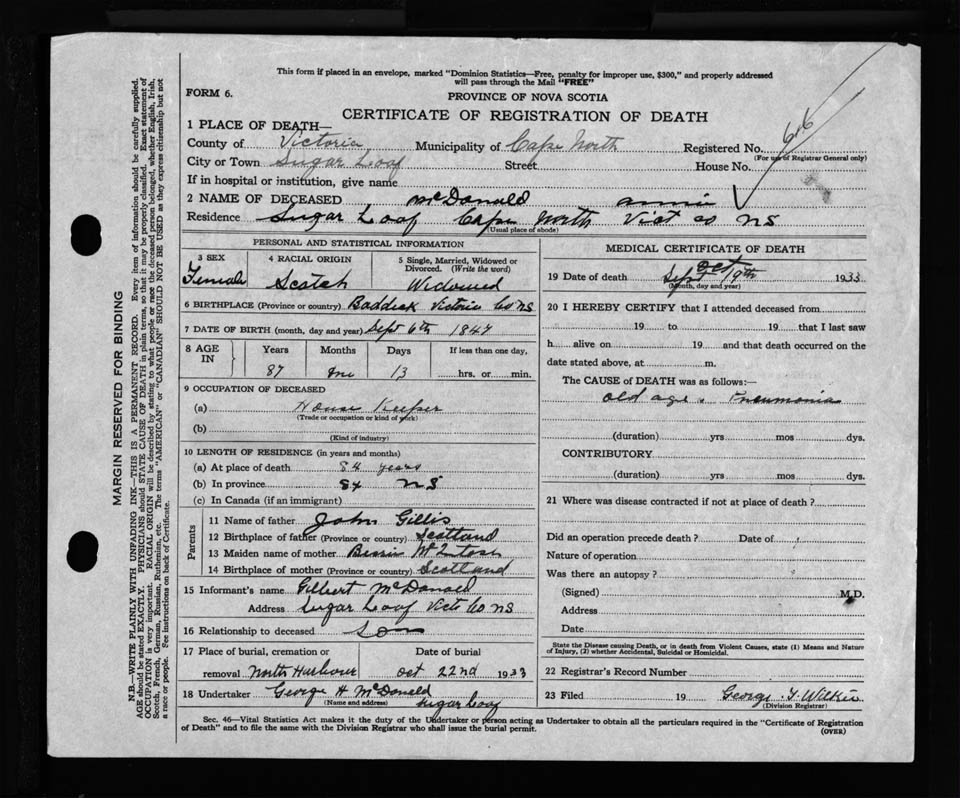 This form if placed in an envelope, marked "Dominion Statistics—Free, penalty for improper use, $300," and properly addressed
will pass through the Mail "FREE"
FORM 6.
PROVINCE OF NOVA SCOTIA
CERTIFICATE OF REGISTRATION OF DEATH
1 PLACE OF DEATH—
County of Victoria Municipality of Cape North Registered No. 616
(For use of Registrar General only)
City or Town Sugar Loaf Street House No.
If in hospital or institution, give name
2 NAME OF DECEASED McDonald Annie
Residence Sugar Loaf Cape North Vict co NS
(Usual place of abode)
PERSONAL AND STATISTICAL INFORMATION
3 SEX 4 RACIAL ORIGIN 5 Single, Married, Widowed or
Divorced. (Write the word)
Female Scotch Widowed
6 BIRTHPLACE (Province or country) Baddeck Victoria Co NS
7 DATE OF BIRTH (month, day and year) Sept 6th 1847
8 AGE IN Years Months Days If less than one day,
87 one 13 hrs. or min.
9 OCCUPATION OF DECEASED
(a) House Keeper
(Trade or occupation or kind of work)
(b)
(Kind of industry)
10 LENGTH OF RESIDENCE (in years and months)
(a) At place of death 84 years
(b) In province 84 NS
(c) In Canada (if an immigrant)
Parents
11 Name of father John Gillis
12 Birthplace of father (Province or country) Scotland
13 Maiden name of mother Bessie McIntosh
14 Birthplace of mother (Province or country) Scotland
15 Informant's name Gilbert McDonald
Address Sugar Loaf Victo Co NS
16 Relationship to deceased Son
17 Place of burial, cremation or Date of burial
removal North Harbour Oct 22nd 1933
18 Undertaker George H McDonald
(Name and address) Sugar Loaf
MEDICAL CERTIFICATE OF DEATH
19 Date of death Sept Oct 19th 1933
(Month, day and year)
20 I HEREBY CERTIFY that I attended deceased from
19 to 19 that I last saw
h alive on 19 and that death occurred on the
date stated above, at m.
The CAUSE of DEATH was as follows:—
old age. Pneumonia
(duration) yrs mos dys.
CONTRIBUTORY
(duration) yrs. mos dys.
21 Where was disease contracted if not at place of death?
Did an operation precede death? Date of
Nature of operation
Was there an autopsy?
(Signed) M.D.
Address
Date
State the Disease causing Death, or in death from Violent Causes, state (1) Means and Nature
of Injury, (2) whether Accidental, Suicidal or Homicidal.
22 Registrar's Record Number
23 Filed 19 George Y. Wilkie
(Division Registrar)
Sec. 46—Vital Statistics Act makes it the duty of the Undertaker or person acting as Undertaker to obtain all the particulars required in the "Certificate of Registration
of Death" and to file the same with the Division Registrar who shall issue the burial permit.
(OVER)
MARGIN RESERVED FOR BINDING
N.B.—WRITE PLAINLY WITH UNFADING INK—THIS IS A PERMANENT RECORD. Every item of information should be carefully supplied.
AGE should be stated EXACTLY. PHYSICIANS should STATE CAUSE OF DEATH in plain terms, so that it may be properly classified. Exact statement of
OCCUPATION is very important. RACIAL ORIGIN will be described by stating to what people or race the deceased person belonged, whether English, Irish,
Scotch, French, German, Russian, Ruthenian, etc. The terms "AMERICAN" or "CANADIAN" SHOULD NOT BE USED as they express citizenship but not
a race or people. See instructions on back of Certificate.